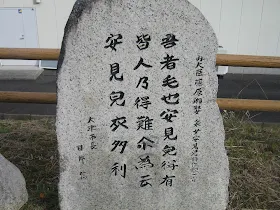 内大臣藤原
吾者毛也安見兒得有
皆人乃得難尓為云
安見兒衣多利
大津市長